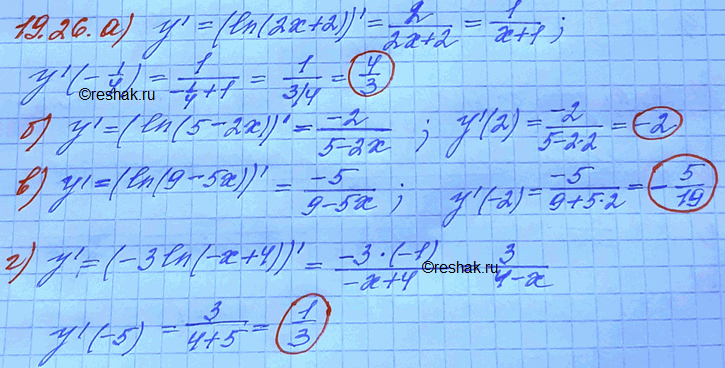 19.26. а) y' = (ln(2x+2))' = 2/(2x+2) = 1/(x+1);
y'(-1/4) = 1/(-1/4+1) = 1/(3/4) = 4/3
©reshak.ru
б) y' = (ln(5-2x))' = -2/(5-2x) ; y'(2) = -2/(5-2·2) = -2
в) y' = (ln(9-5x))' = -5/(9-5x) ; y'(-2) = -5/(9+5·2) = -5/19
г) y' = (-3ln(-x+4))' = -3·(-1)/(-x+4) 3/(4-x)
©reshak.ru
y'(-5) = 3/(4+5) = 1/3